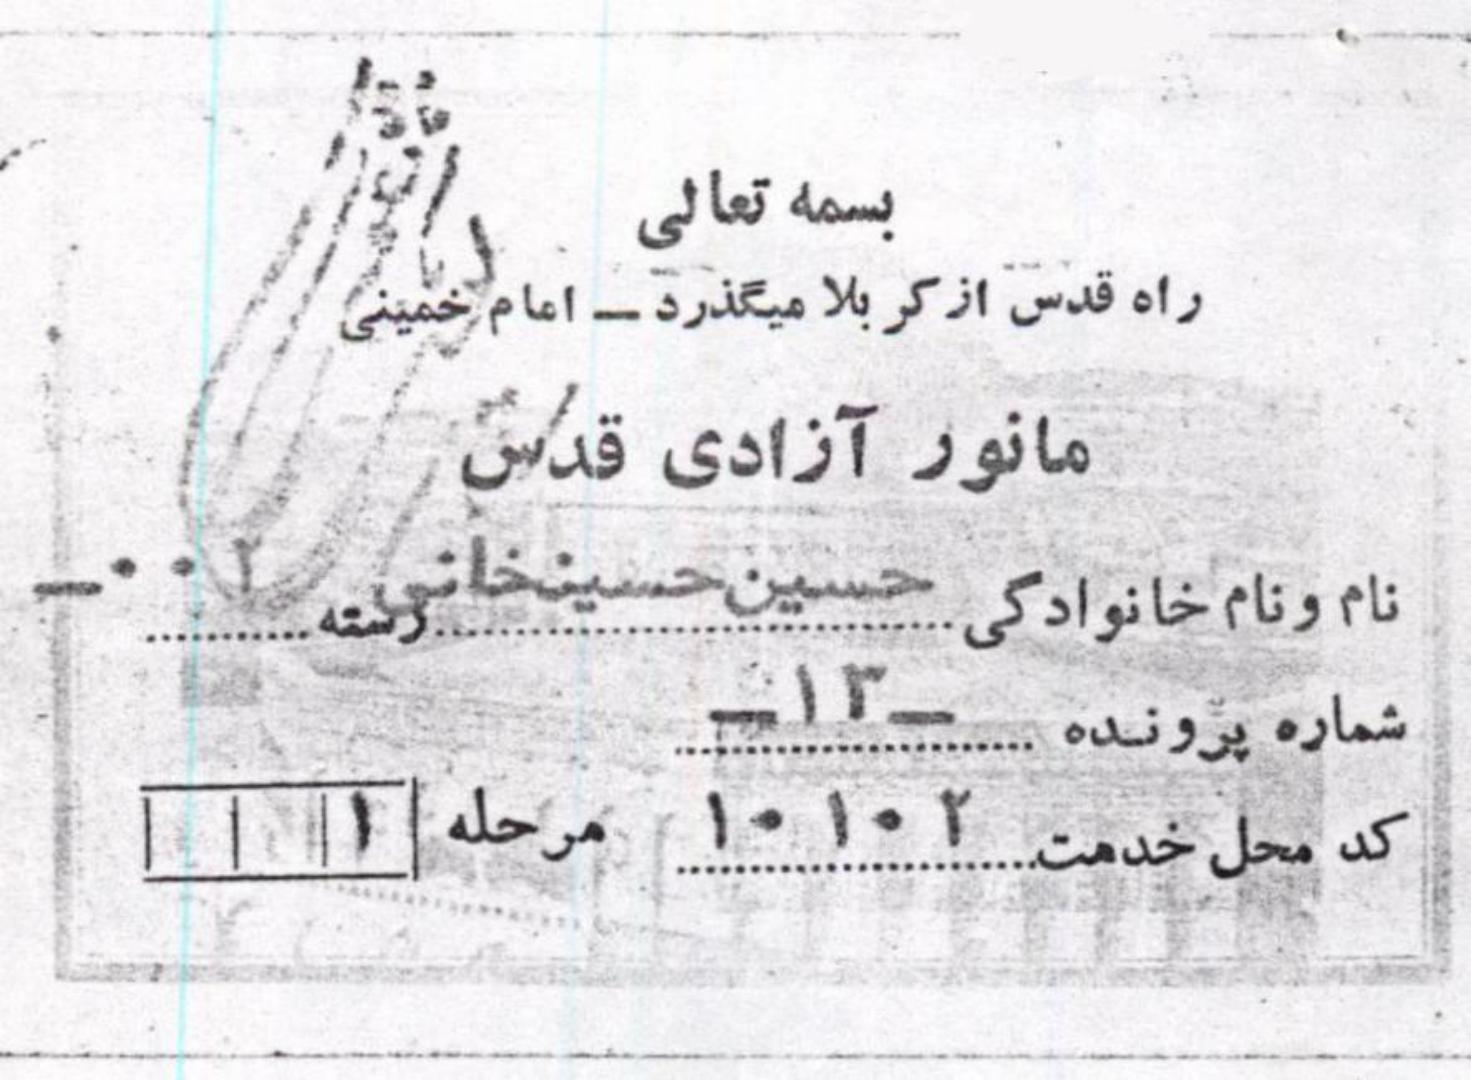 بسمه تعالی
راه قدس از کربلا میگذرد ــ امام خمینی
مانور آزادی قدس
نام و نام خانوادگی حسین حسینخانی رسته ۲۰۰ــ
شماره پرونده ــ۱۳ــ
کد محل خدمت ۱۰۱۰۲ مرحله ۱